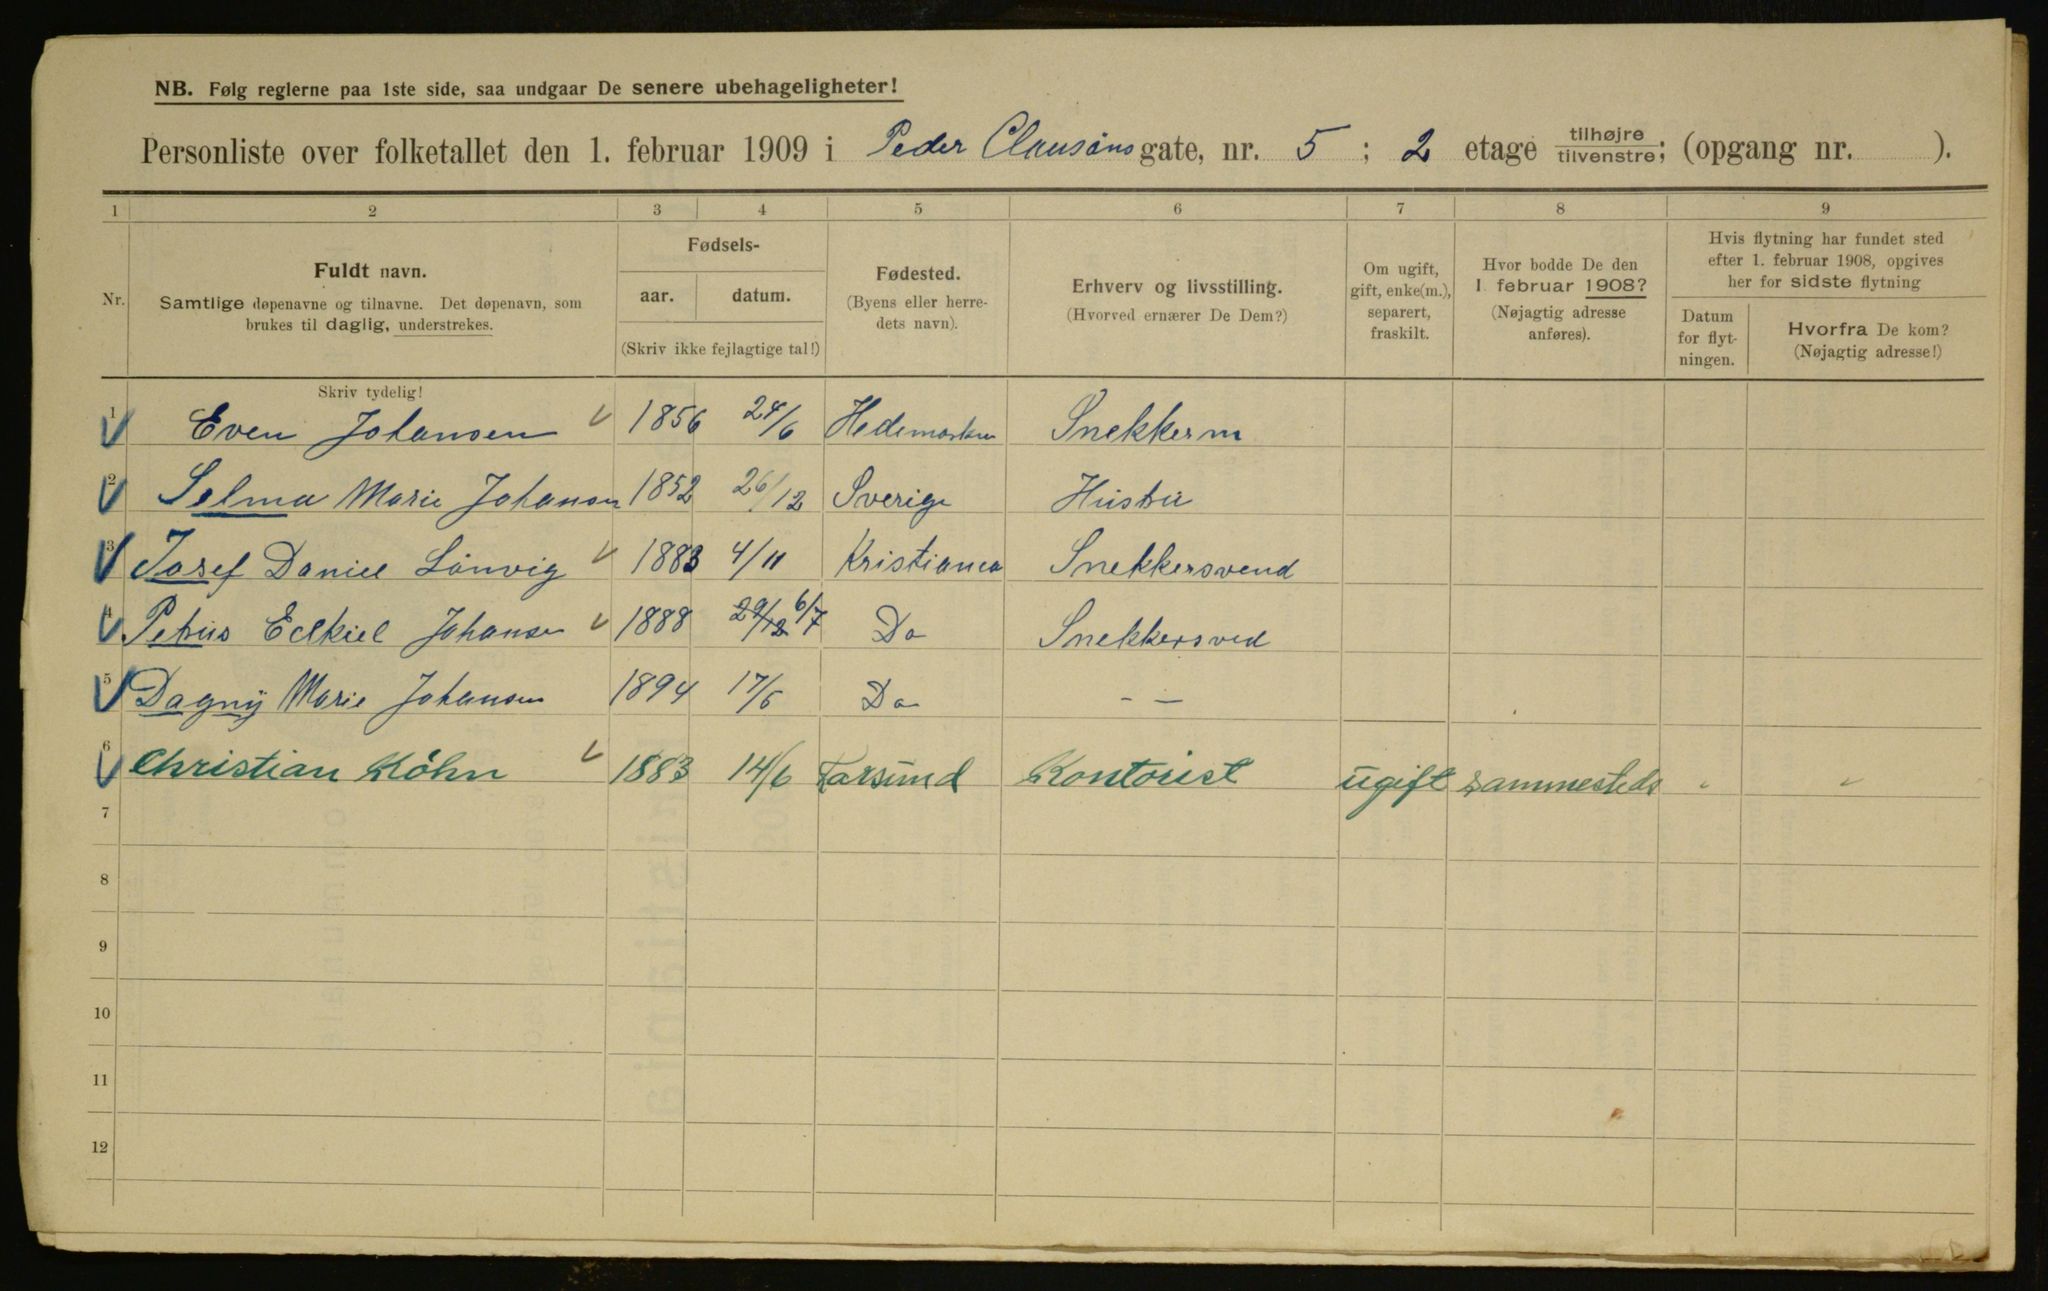 NB. Følg reglerne paa 1ste side, saa undgaar De senere ubehageligheter!
Personliste over folketallet den 1. februar 1909 i Peder Clausøns gate, nr. 5 ; 2 etage tilhøjre/tilvenstre; (opgang nr. ).
1 2 3 4 5 6 7 8 9
Nr.
Fuldt navn.
Samtlige døpenavne og tilnavne. Det døpenavn, som
brukes til daglig, understrekes.
Fødsels-
aar. datum.
(Skriv ikke fejlagtige tal!)
Fødested.
(Byens eller herre-
dets navn).
Erhverv og livsstilling.
(Hvorved ernærer De Dem?)
Om ugift,
gift, enke(m.),
separert,
fraskilt.
Hvor bodde De den
1. februar 1908?
(Nøjagtig adresse
anføres).
Hvis flytning har fundet sted
efter 1. februar 1908, opgives
her for sidste flytning
Datum
for flyt-
ningen.
Hvorfra De kom?
(Nøjagtig adresse!)
Skriv tydelig!
1 Even Johansen 1856 24/6 Hedemarken Snekkerm
2 Selma Marie Johansen 1852 26/12 Sverige Hustru
3 Josef Daniel Lönvig 1883 4/11 Kristiania Snekkersvend
4 Petrus Johansen 1888 29/12 6/7 Do Snekkersved
5 Dagny Marie Johansen 1894 17/6 Do - -
6 Christian Köhn 1883 14/6 Farsund Kontorist ugift sammesteds " "
7
8
9
10
11
12